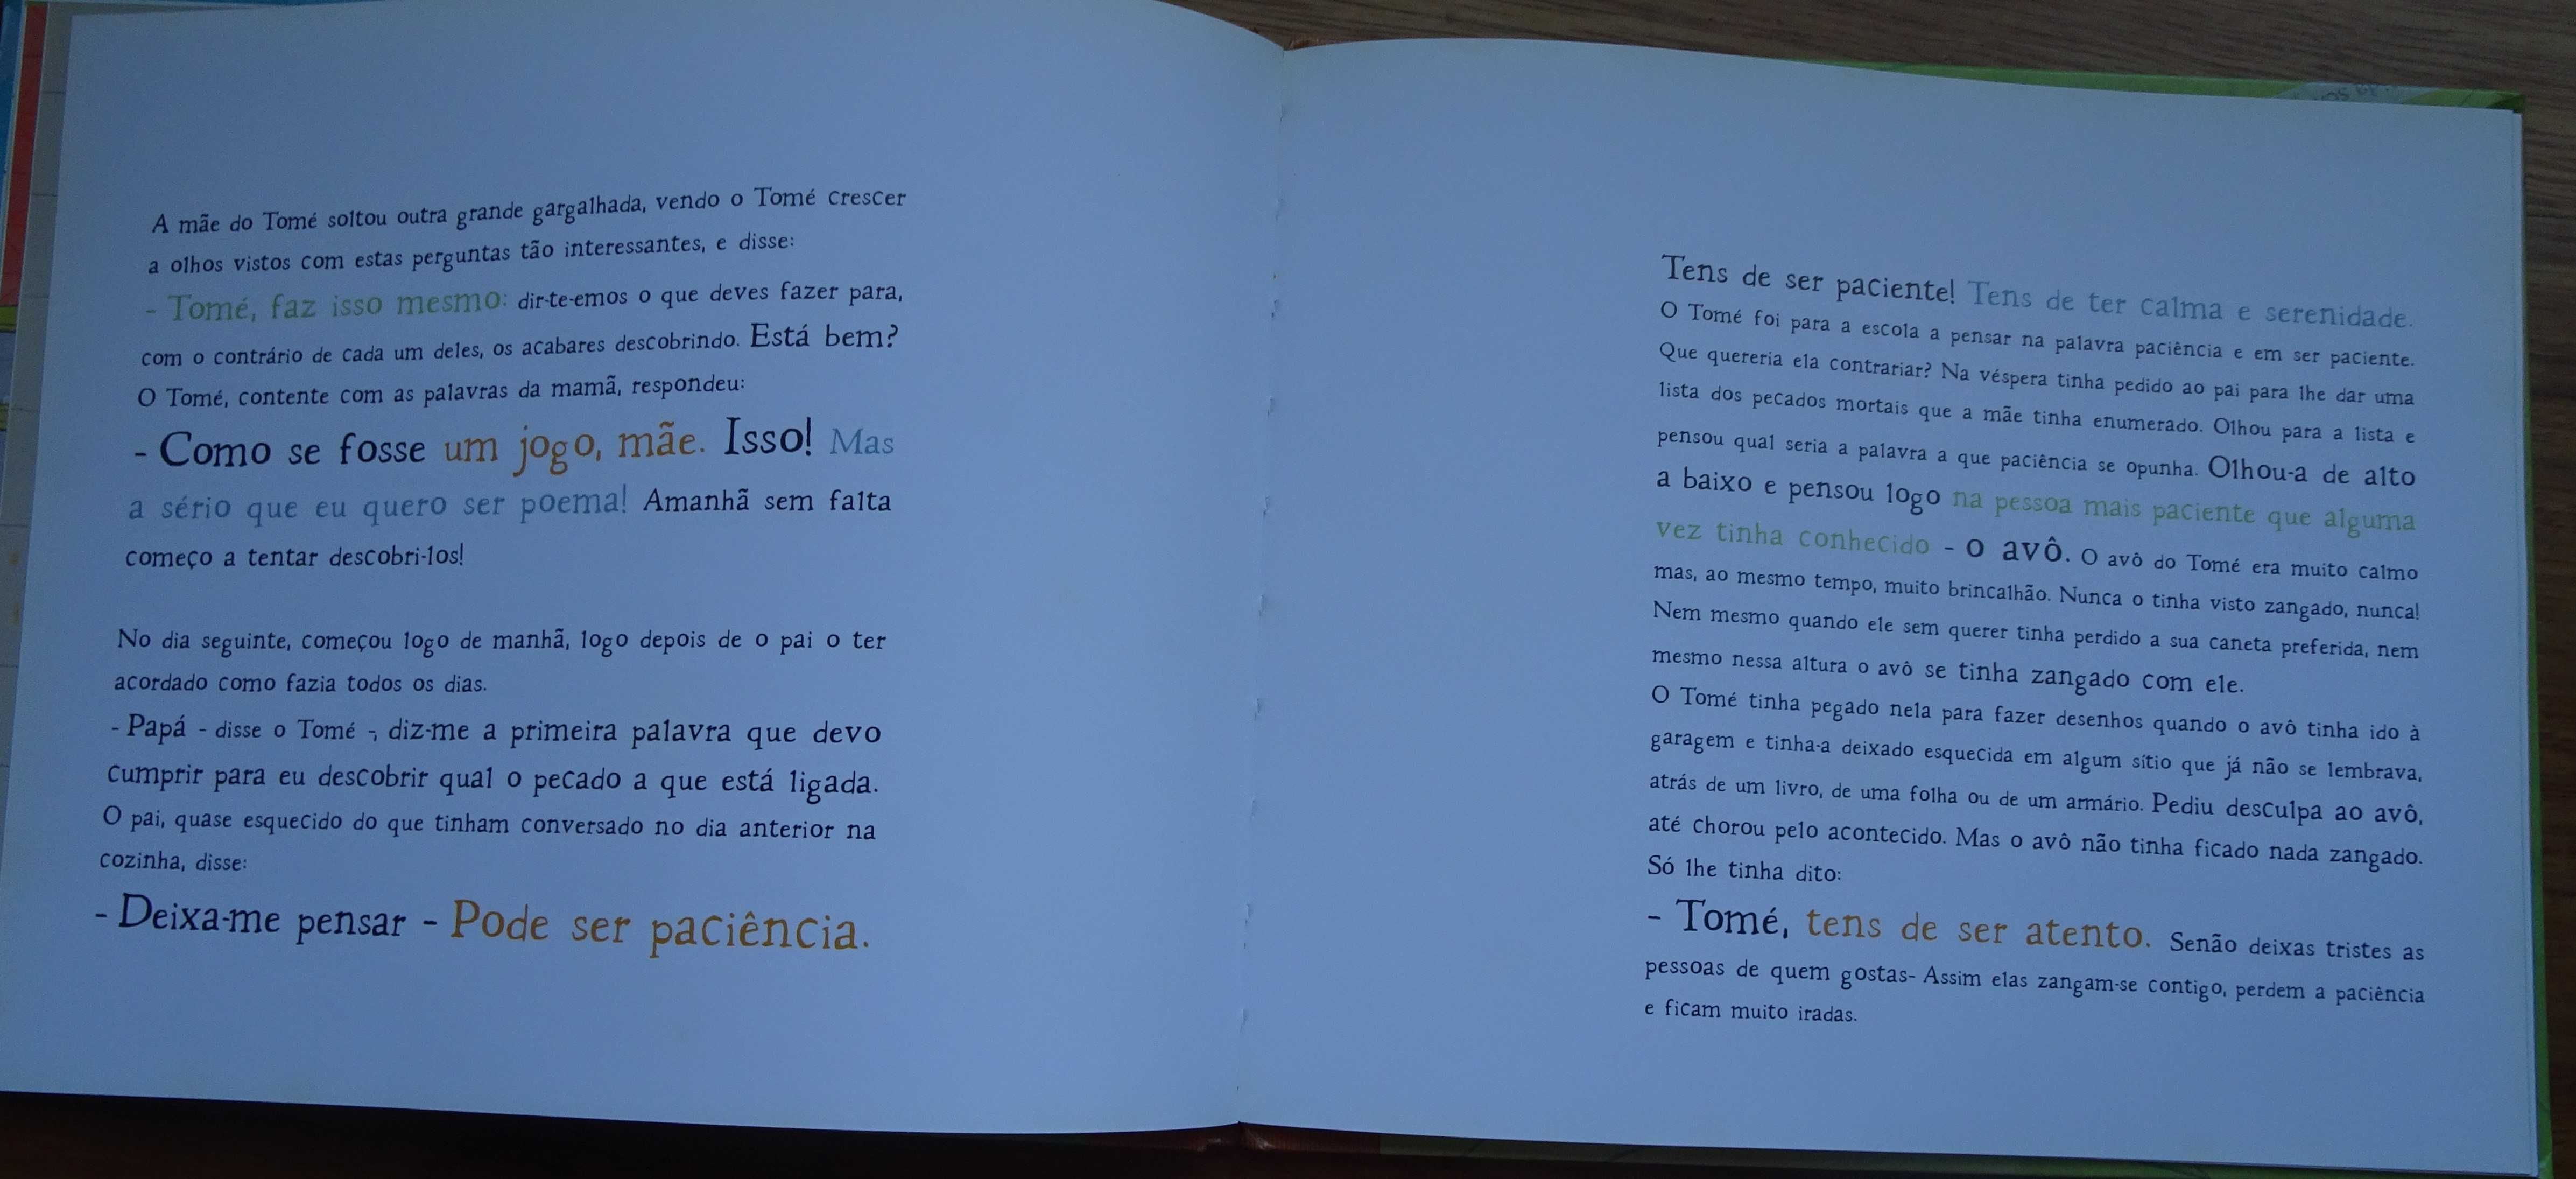 A mãe do Tomé soltou outra grande gargalhada, vendo o Tomé crescer
a olhos vistos com estas perguntas tão interessantes, e disse:
- Tomé, faz isso mesmo: dir-te-emos o que deves fazer para,
com o contrário de cada um deles, os acabares descobrindo. Está bem?
O Tomé, contente com as palavras da mamã, respondeu:
- Como se fosse um jogo, mãe. Isso! Mas
a sério que eu quero ser poema! Amanhã sem falta
começo a tentar descobri-los!
No dia seguinte, começou logo de manhã, logo depois de o pai o ter
acordado como fazia todos os dias.
- Papá - disse o Tomé -, diz-me a primeira palavra que devo
cumprir para eu descobrir qual o pecado a que está ligada.
O pai, quase esquecido do que tinham conversado no dia anterior na
cozinha, disse:
- Deixa-me pensar - Pode ser paciência.
Tens de ser paciente! Tens de ter calma e serenidade.
O Tomé foi para a escola a pensar na palavra paciência e em ser paciente.
Que quereria ela contrariar? Na véspera tinha pedido ao pai para lhe dar uma
lista dos pecados mortais que a mãe tinha enumerado. Olhou para a lista e
pensou qual seria a palavra a que paciência se opunha. Olhou-a de alto
a baixo e pensou logo na pessoa mais paciente que alguma
vez tinha conhecido - o avô. O avô do Tomé era muito calmo
mas, ao mesmo tempo, muito brincalhão. Nunca o tinha visto zangado, nunca!
Nem mesmo quando ele sem querer tinha perdido a sua caneta preferida, nem
mesmo nessa altura o avô se tinha zangado com ele.
O Tomé tinha pegado nela para fazer desenhos quando o avô tinha ido à
garagem e tinha-a deixado esquecida em algum sítio que já não se lembrava,
atrás de um livro, de uma folha ou de um armário. Pediu desculpa ao avô,
até chorou pelo acontecido. Mas o avô não tinha ficado nada zangado.
Só lhe tinha dito:
- Tomé, tens de ser atento. Senão deixas tristes as
pessoas de quem gostas- Assim elas zangam-se contigo, perdem a paciência
e ficam muito iradas.